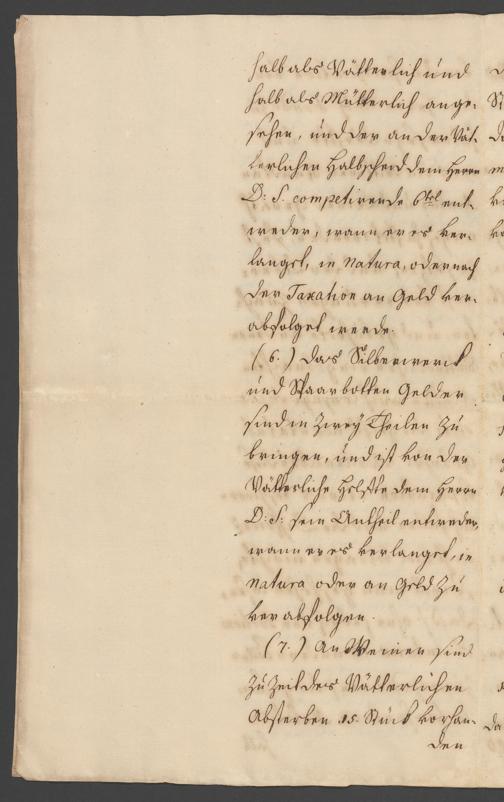 halb als Vätterlich und
halb als Mütterlich ange-
sehen, und der an der Vät-
terlichen Halbscheid dem Herrn
D: S. competirende 6tel ent-
weder, wann er es ver-
langet, in Natura, oder nach
der Taxation an Geld ver-
abfolget werde.
(6.) das Silberwerck
und Spaarbotten Gelder
sind in Zwey Theilen zu
bringen, und ist von der
Vätterliche Helffte dem Herrn
D: S: sein Antheil entweder,
wann er es verlanget, in
natura oder an Geld zu
verabfolgen.
(7.) An Weinen sind
zu Zeit des Vätterlichen
Absterben 15. Stück vorhan-
den